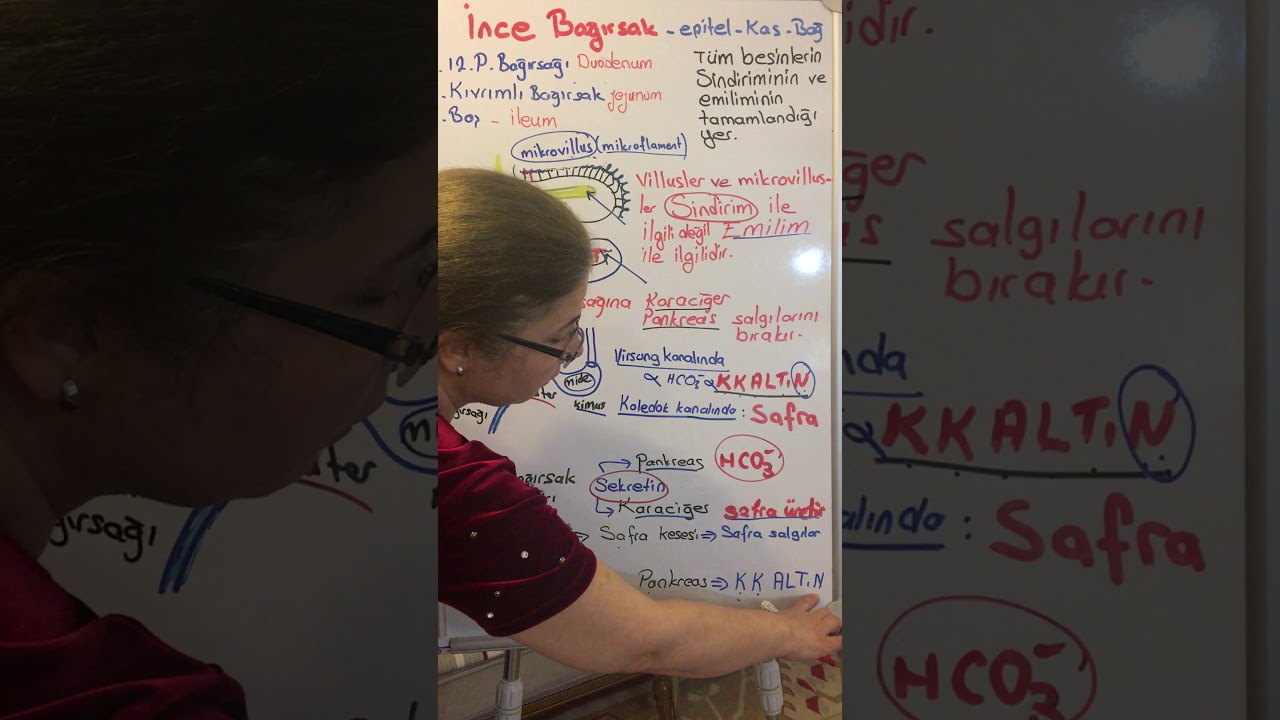 İnce Bağırsak - epitel - Kas - Bağ
. 12. P. Bağırsağı Duodenum
. Kıvrımlı Bağırsak jejunum
. Boş - ileum
Tüm besinlerin
Sindiriminin ve
emiliminin
tamamlandığı
yer.
mikrovillus (mikroflament)
Villusler ve mikrovillus-
ler Sindirim ile
ilgili değil Emilim
ile ilgilidir.
Karaciğer
Pankreas salgılarını
bırakır.
Virsung kanalında
HCO3⁻ KKALTıN
mide
kimus
Koledok kanalında : Safra
Pankreas HCO3⁻
Sekretin
Karaciğer safra üretir
Safra kesesi ⇒ Safra salgılar
Pankreas ⇒ KKALTıN
idir.
ğer
salgılarını
bırakır.
KKALTıN
: Safra
HCO3⁻